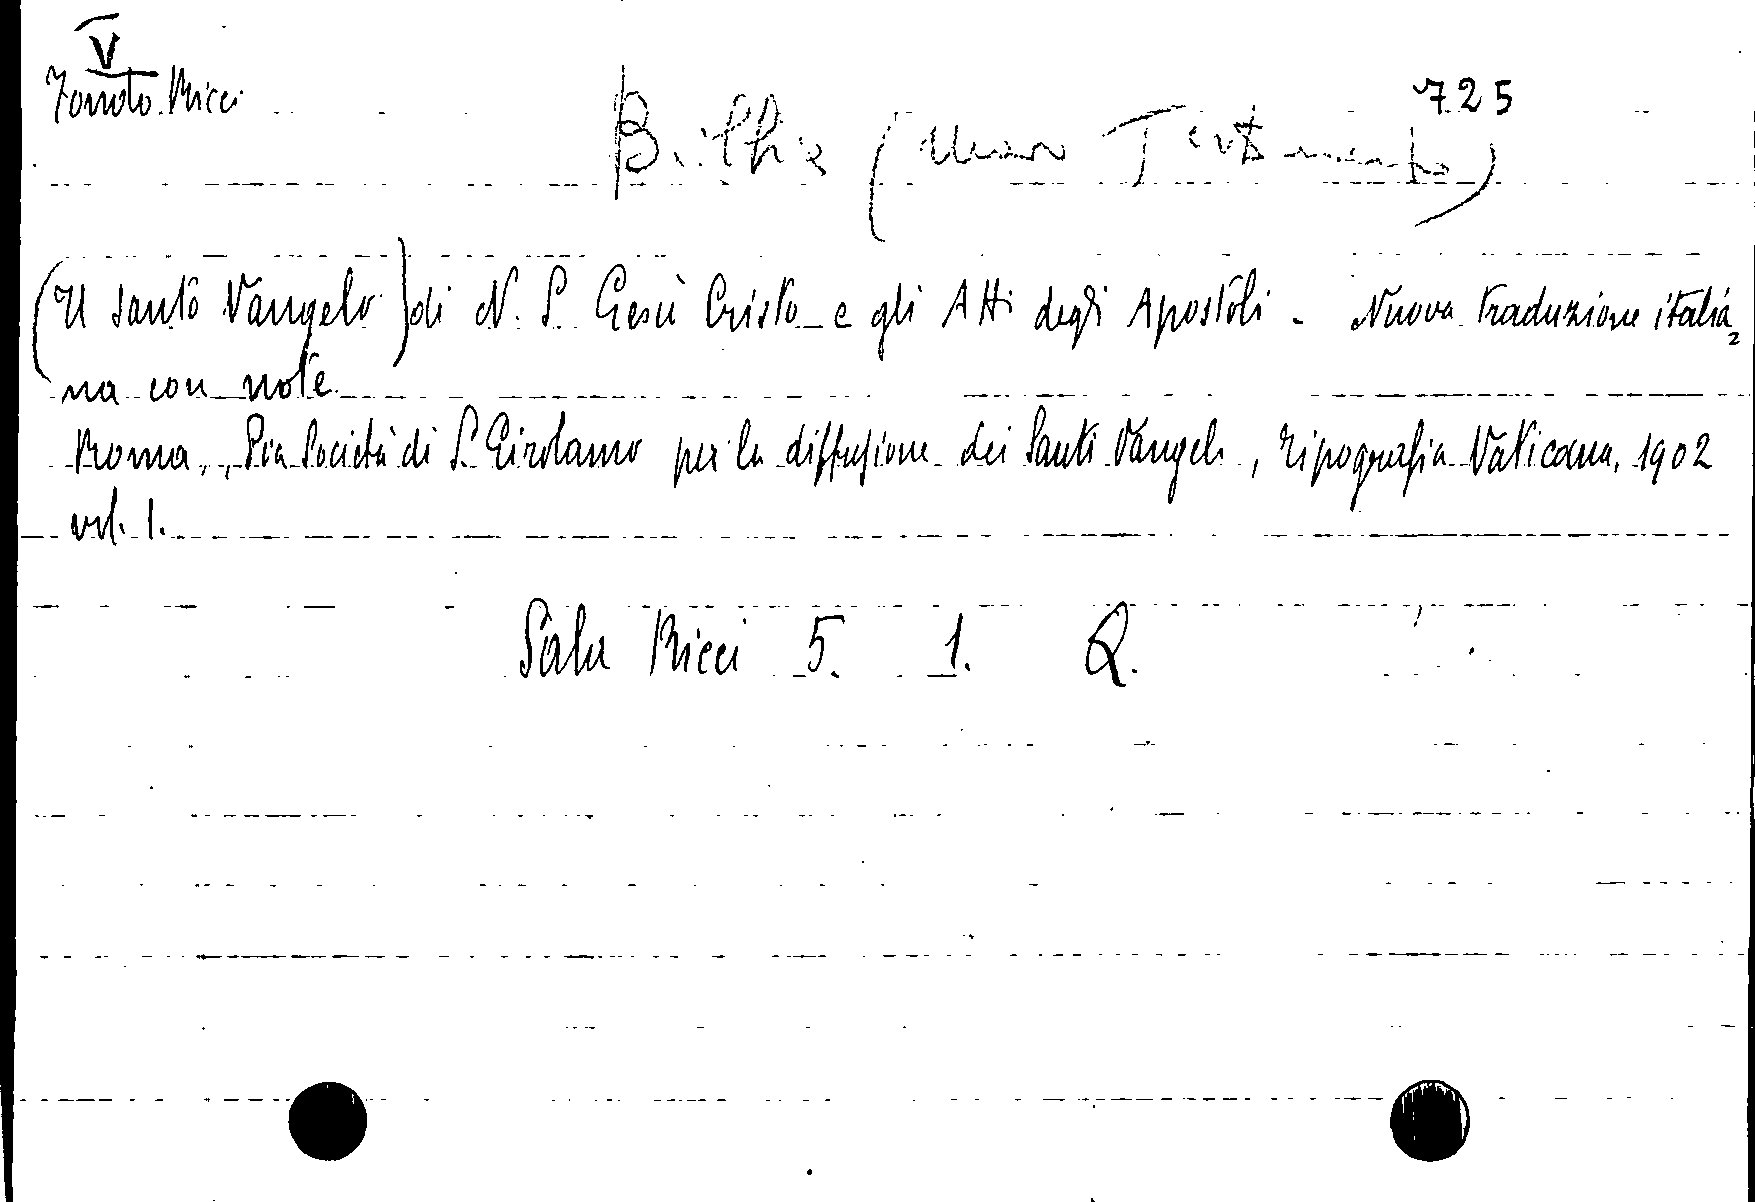 V
Fondo Ricci
725
Bibbia (Nuovo Testamento)
(Il santo Vangelo) di N. S. Gesù Cristo e gli Atti degli Apostoli - Nuova traduzione italia=
na con note
Roma, Pia Società di S. Girolamo per la diffusione dei Santi Vangeli, Tipografia Vaticana, 1902
vol. 1.
Sala Ricci 5. 1. Q.